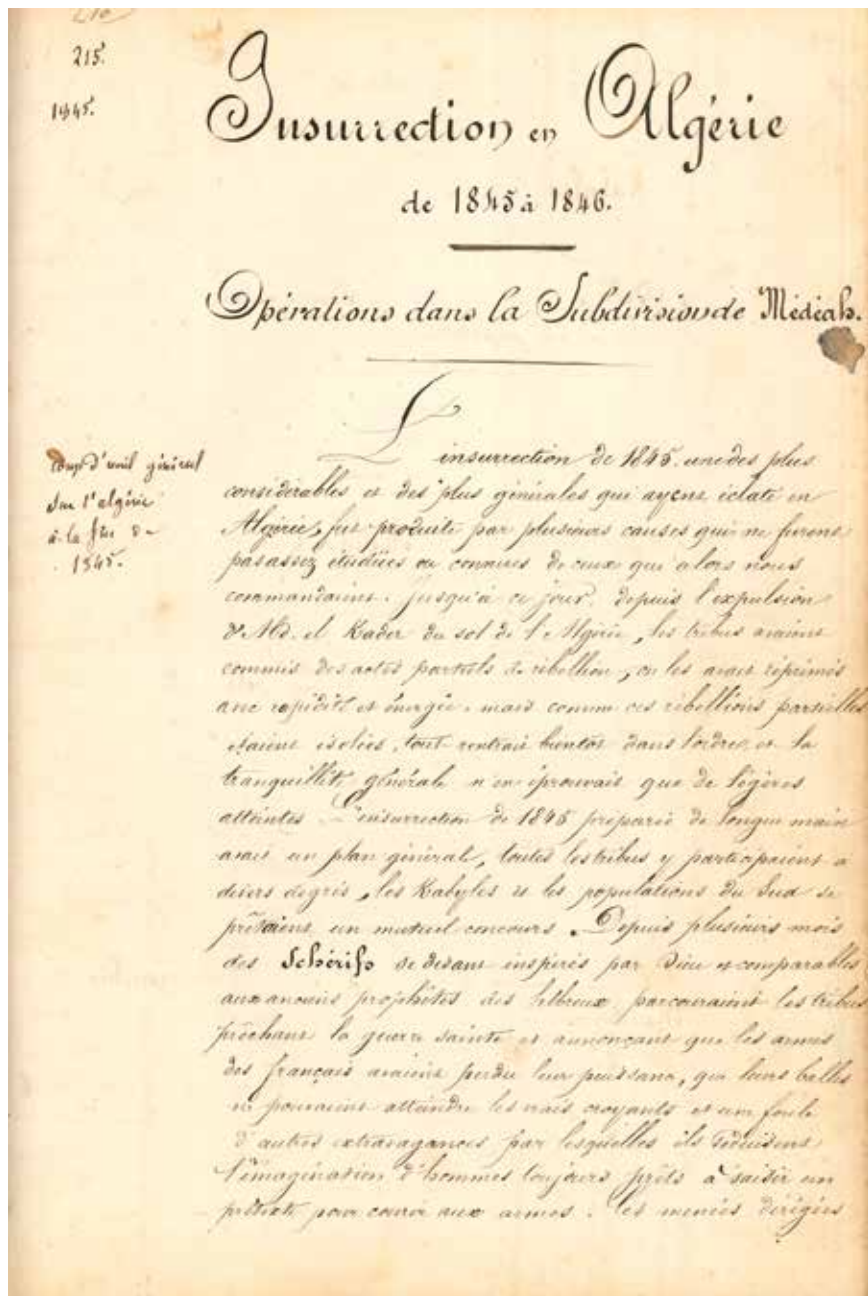 215.
1845.
Insurrection en Algérie
de 1845 à 1846.
Opérations dans la Subdivision de Médéah.
Coup d'œuil général
sur l'algérie
à la fin de
1845.
L'insurrection de 1845. une des plus
considérables et des plus générales qui ayent éclaté en
Algérie, fut produite par plusieurs causes qui ne furent
pas assez étudiées ou connues de ceux qui alors nous
commandaient. Jusqu'à ce jour, depuis l'expulsion
d'Abd. el Kader du sol de l'Algérie, les tribus avaient
commis des actes partiels de rébellion, on les avait réprimés
avec rapidité et énergie. mais comme ces rébellions partielles
étaient isolées, tout rentrait bientôt dans l'ordre, et la
tranquillité générale n'en éprouvait que de légères
atteintes. L'insurrection de 1845 préparée de longue main
avait un plan général, toutes les tribus y participaient à
divers degrés, les Kabyles et les populations du Sud se
prêtaient un mutuel concours. Depuis plusieurs mois
des Schérifs se disant inspirés par Dieu et comparables
aux anciens prophètes des hébreux parcouraient les tribus
prêchant la guerre sainte et annonçant que les armes
des français avaient perdu leur puissance, que leurs balles
ne pouvaient atteindre les vrais croyants et une foule
d'autres extravagances par lesquelles ils séduisent
l'imagination d'hommes toujours prêts à saisir un
prétexte pour courir aux armes. Les menées dirigées